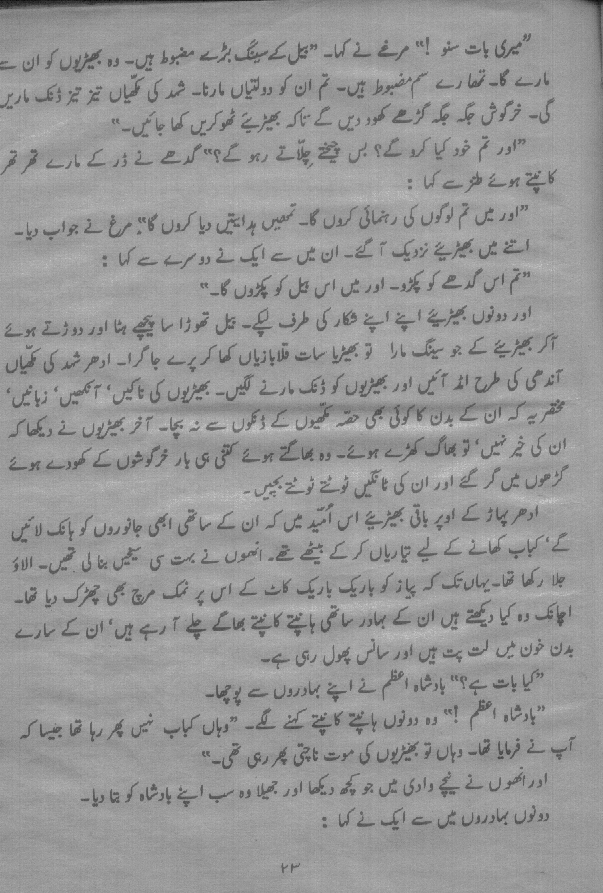 ”میری بات سنو !“ مرغے نے کہا۔ ”بیل کے سینگ بڑے مضبوط ہیں۔ وہ بھیڑیوں کو ان سے
مارے گا۔ تمھارے سم مضبوط ہیں۔ تم ان کو دولتیاں مارنا۔ شہد کی مکھیاں تیز تیز ڈنک ماریں
گی۔ خرگوش جگہ جگہ گڑھے کھود دیں گے تاکہ بھیڑیئے ٹھوکریں کھا جائیں۔“
”اور تم خود کیا کرو گے؟ بس چیختے چلّاتے رہو گے؟“ گدھے نے ڈر کے مارے تھر تھر
کانپتے ہوئے طنز سے کہا :
”اور میں تم لوگوں کی رہنمائی کروں گا۔ تمھیں ہدایتیں دیا کروں گا“۔ مرغ نے جواب دیا۔
اتنے میں بھیڑیئے نزدیک آ گئے۔ ان میں سے ایک نے دوسرے سے کہا :
”تم اس گدھے کو پکڑو۔ اور میں اس بیل کو پکڑوں گا۔“
اور دونوں بھیڑیئے اپنے اپنے شکار کی طرف لپکے۔ بیل تھوڑا سا پیچھے ہٹا اور دوڑتے ہوئے
آکر بھیڑیئے کے جو سینگ مارا تو بھیڑیا سات قلابازیاں کھا کر پرے جا گرا۔ ادھر شہد کی مکھیاں
آندھی کی طرح امڈ آئیں اور بھیڑیوں کو ڈنک مارنے لگیں۔ بھیڑیوں کی ناکیں‘ آنکھیں‘ زبانیں‘
مختصر یہ کہ ان کے بدن کا کوئی بھی حصّہ مکھیوں کے ڈنکوں سے نہ بچا۔ آخر بھیڑیوں نے دیکھا کہ
ان کی خیر نہیں‘ تو بھاگ کھڑے ہوئے۔ وہ بھاگتے ہوئے کتنی ہی بار خرگوشوں کے کھودے ہوئے
گڑھوں میں گر گئے اور ان کی ٹانگیں ٹوٹتے ٹوٹتے بچیں۔
ادھر پہاڑ کے اوپر باقی بھیڑیئے اس اُمّید میں کہ ان کے ساتھی ابھی جانوروں کو ہانک لائیں
گے‘ کباب کھانے کے لیے تیّاریاں کر کے بیٹھے تھے۔ انھوں نے بہت سی سیخیں بنا لی تھیں۔ الاؤ
جلا رکھا تھا۔ یہاں تک کہ پیاز کو باریک باریک کاٹ کے اس پر نمک مرچ بھی چھڑک دیا تھا۔
اچانک وہ کیا دیکھتے ہیں ان کے بہادر ساتھی ہانپتے کانپتے بھاگے چلے آ رہے ہیں‘ ان کے سارے
بدن خون میں لت پت ہیں اور سانس پھول رہی ہے۔
”کیا بات ہے؟“ بادشاہ اعظم نے اپنے بہادروں سے پوچھا۔
”بادشاہ اعظم !“ وہ دونوں ہانپتے کانپتے کہنے لگے۔ ”وہاں کباب نہیں پھر رہا تھا جیسا کہ
آپ نے فرمایا تھا۔ وہاں تو بھیڑیوں کی موت ناچتی پھر رہی تھی۔“
اور انھوں نے نیچے وادی میں جو کچھ دیکھا اور جھیلا وہ سب اپنے بادشاہ کو بتا دیا۔
دونوں بہادروں میں سے ایک نے کہا :
۲۳